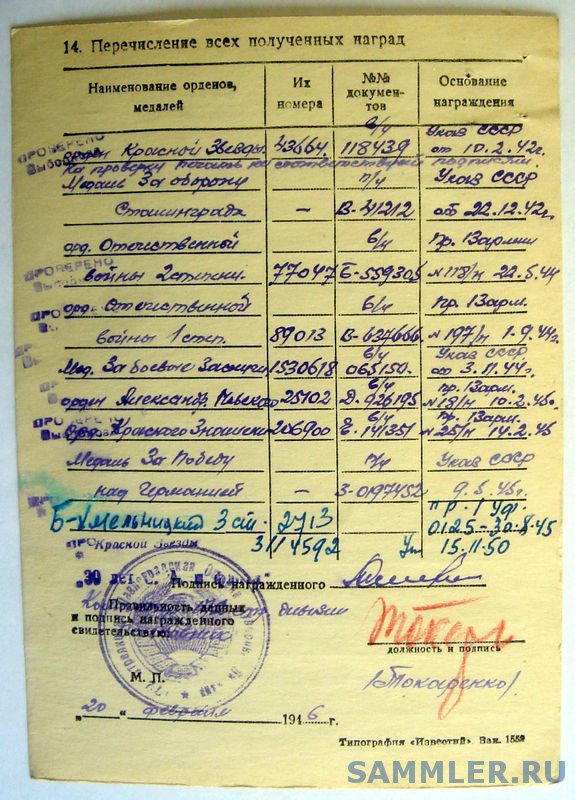 14. Перечисление всех полученных наград
Наименование орденов, медалей
Их номера
№№ документов
Основание награждения
ПРОВЕРЕНО
в/ч Указ СССР
Орден Красной Звезды. 43664. 118439 от 10.2.42г.
Медаль За оборону п/ч Указ СССР
Сталинграда — В-41212 от 22.12.42г.
орд. Отечественной в/ч Пр. 1 Зарм
войны 2 степени. 77047 Б-559305 №118/н 22.5.44
ПРОВЕРЕНО
орд. Отечественной в/ч Пр. 1 Зарм.
войны 1 степ. 89013 В-634666 №197/н 1.9.44г.
в/ч Указ СССР
Мед. За боевые Заслуги 1530618 065150. от 3.11.44г.
в/ч пр. 1 Зарм.
орден Александр. Невского 25102 Д-926195 №18/н 10.2.45г.
в/ч пр. 1 Зарм.
орд. Красного Знамени 206900 Е-141351 №25/н 14.2.45
Медаль За Победу п/ч Указ СССР
над Германией — З-0197452 9.5.45г.
Б-Хмельницкий 3 ст. 2713 0125-30.8.45
Красной Звезды 3114592 Ук 15.11.50
Подпись награжденного
Правильность данных
и подпись награжденного
свидетельствую:
должность и подпись
/Токаренко/
М. П.
„20“ февраля 1946 г.
Типография «Известий». Зак. 1559
SAMMLER.RU